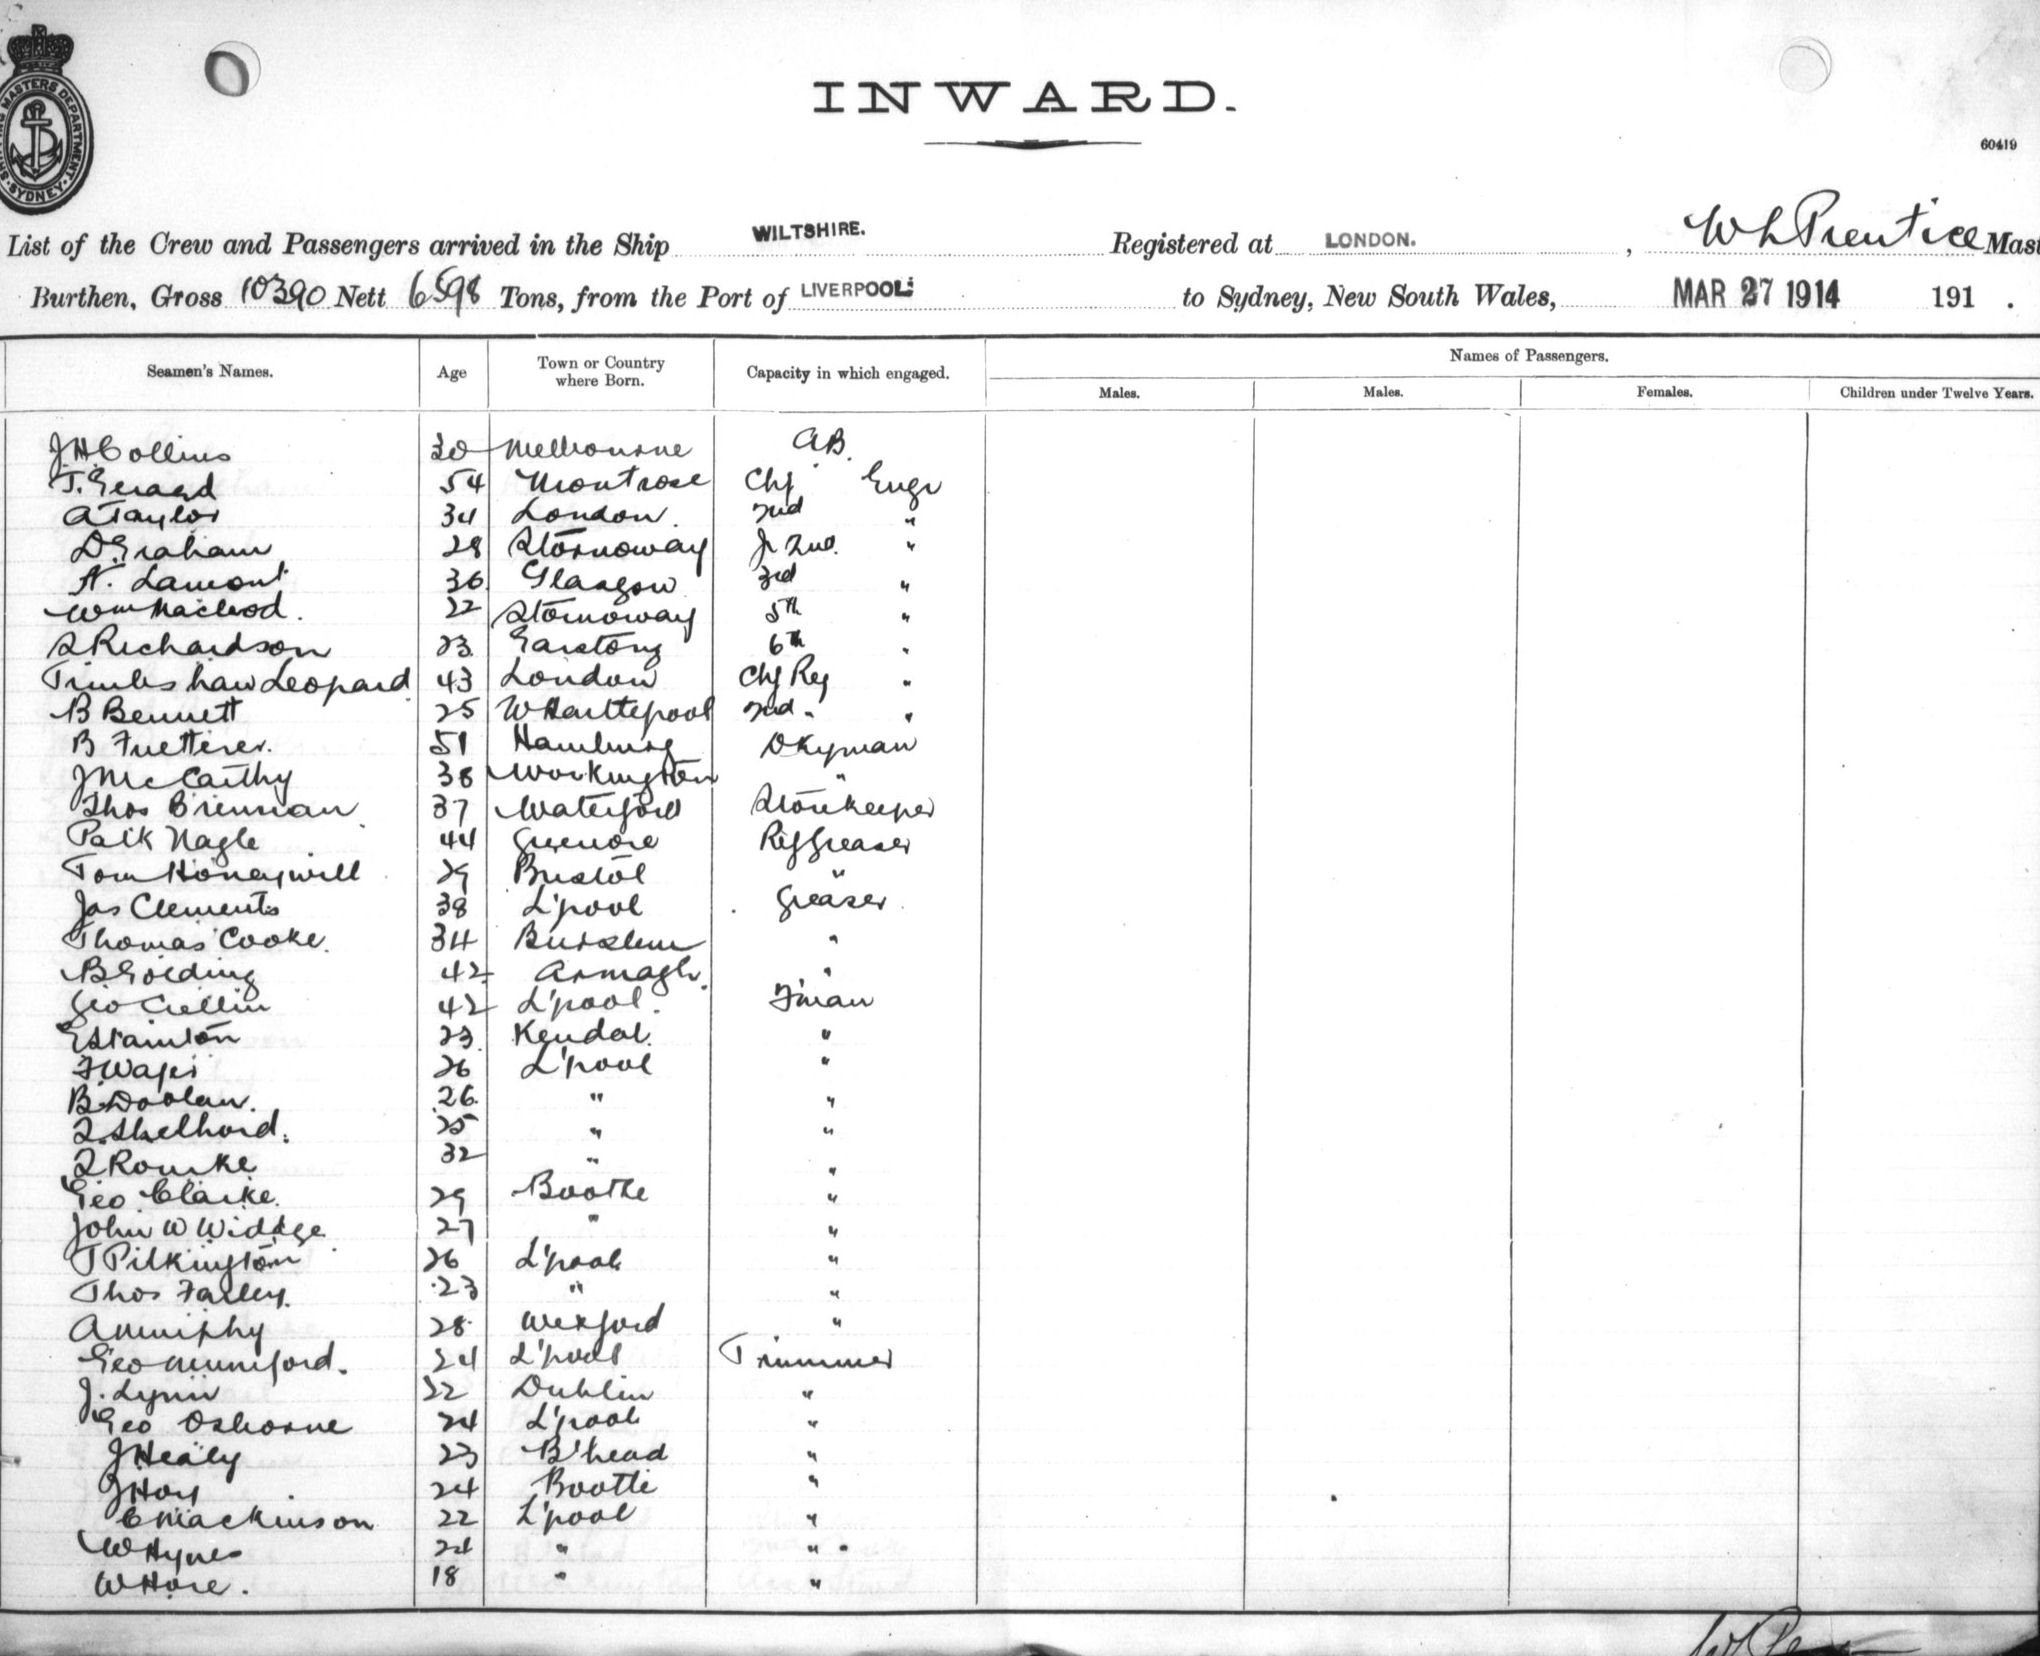 SHIPPING MASTERS DEPARTMENT. SYDNEY.
INWARD.
60419
List of the Crew and Passengers arrived in the Ship WILTSHIRE. Registered at LONDON. , W L Prentice Mast
Burthen, Gross 10390 Nett 6598 Tons, from the Port of LIVERPOOL: to Sydney, New South Wales, MAR 27 1914 191 .
Names of Passengers.
Seamen's Names. Age Town or Country where Born. Capacity in which engaged. Males. Males. Females. Children under Twelve Years.
J H Collins 30 Melbourne AB.
J. Gerard 54 Montrose Chf Engr
A Taylor 34 London. 2nd "
D Graham 28 Stornoway Jr 2nd. "
N. Lamont 36 Glasgow 3rd "
Wm Macleod. 22 Stornoway 5th "
S Richardson 23 6th "
Leopard 43 London Chf Ref "
B Bennett 25 W Hartlepool 2nd " "
B Fuetterer. 51 Hamburg Dkyman
J McCarthy 38 Workington "
Thos Brennan 37 Waterford Storekeeper
Patk Nagle 44 Greenore Ref Greaser
Tom Honeywill 29 Bristol "
Jas Clements 38 L'pool Greaser
Thomas Cooke 34 Burslem "
B Golding 42 Armagh. "
Geo Crellin 42 L'pool. F'man
E Stainton 23 Kendal. "
F 26 L'pool "
B. Doolan. 26 " "
25 " "
Rourke 32 " "
Geo Clarke. 29 Bootle "
John W Widdge 27 " "
T Pilkington 26 L'pool "
Thos Farley. 23 " "
A Murphy 28 Wexford "
Geo Mumford. 24 L'pool Trimmer
J. Lynn 22 Dublin "
Geo Osborne 24 L'pool "
J Healy 23 B'head "
J Hoy 24 Bootle "
C Mackinson 22 L'pool "
W Hynes 24 " "
W Hore. 18 " "